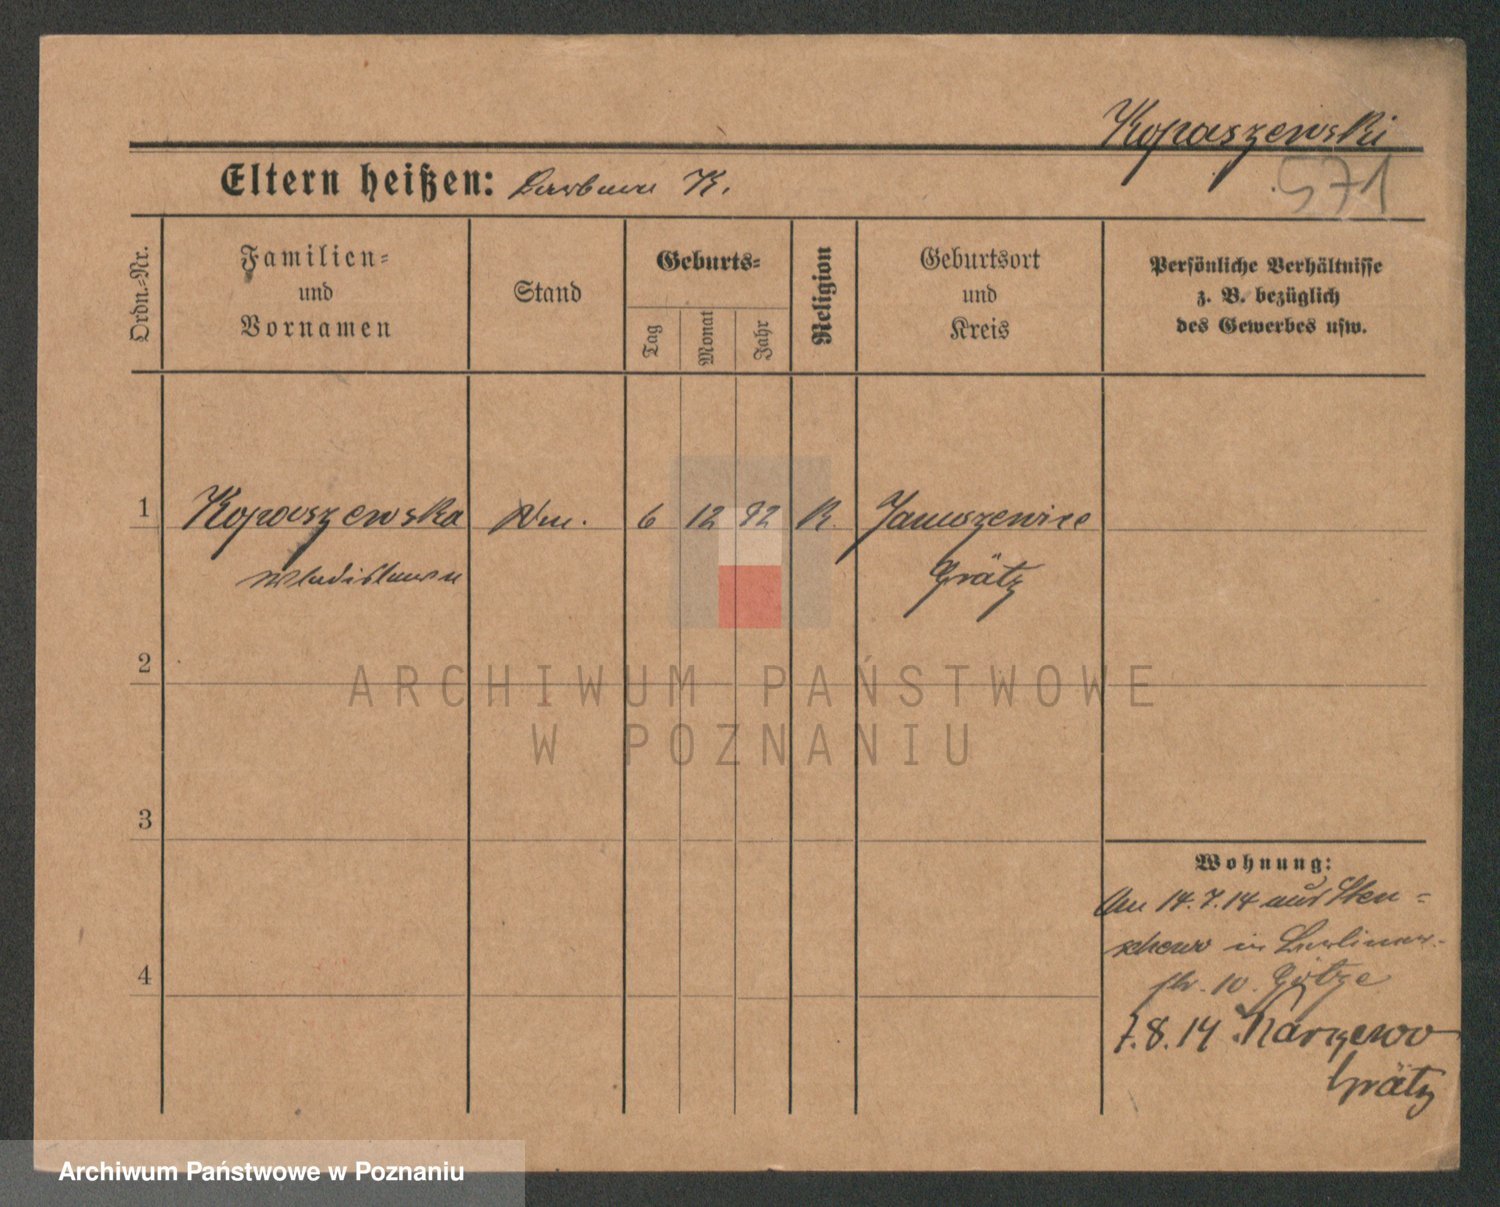 Kopaszewski
571
Eltern heißen: Barbara K.
Ordn.-Nr.
Familien-
und
Vornamen
Stand
Geburts-
Tag
Monat
Jahr
Religion
Geburtsort
und
Kreis
Persönliche Verhältnisse
z. B. bezüglich
des Gewerbes usw.
1 Kopaszewska 6 12 92 K Januszewice
Wladislawa Grätz
2
ARCHIWUM PAŃSTWOWE
W POZNANIU
3
Wohnung:
Am 14.7.14 aus Sten-
schewo in Berliner-
str. 10. Götze
4
7.8.14 Karczewo
Grätz
Archiwum Państwowe w Poznaniu